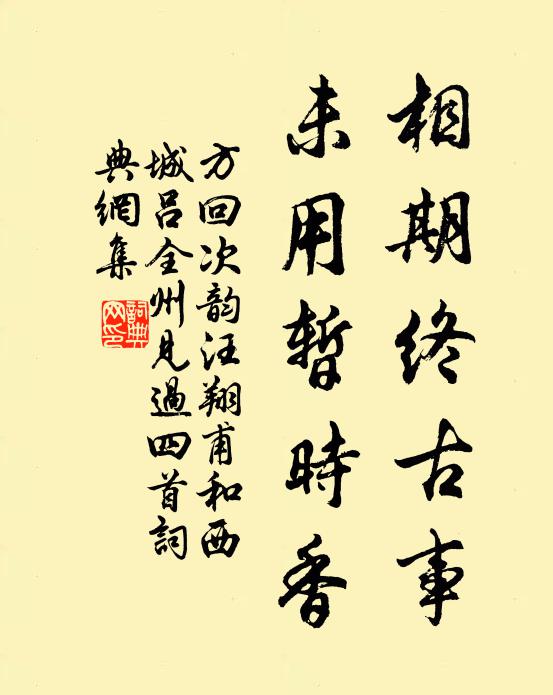 相期终古事
未用暫時香
方回次韵汪翔甫和西
城吕全州見過四首詞
典網集
詞典
网印